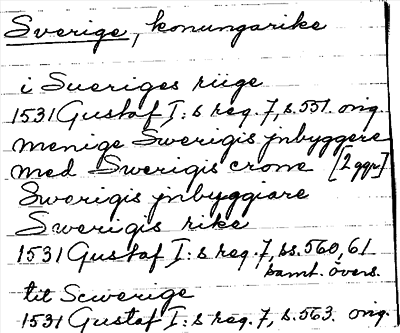 Sverige, konungarike
i Sueriges riige
1531 Gustaf I:s reg. 7, s. 551. orig.
menige Swerigis jnbyggere
med Swerigis crone [2 ggr]
Swerigis jnbyggiare
Swerigis rike
1531 Gustaf I:s reg. 7, ss. 560, 61
samt. övers.
tit Scwerige
1531 Gustaf I:s reg. 7, s. 563. orig.